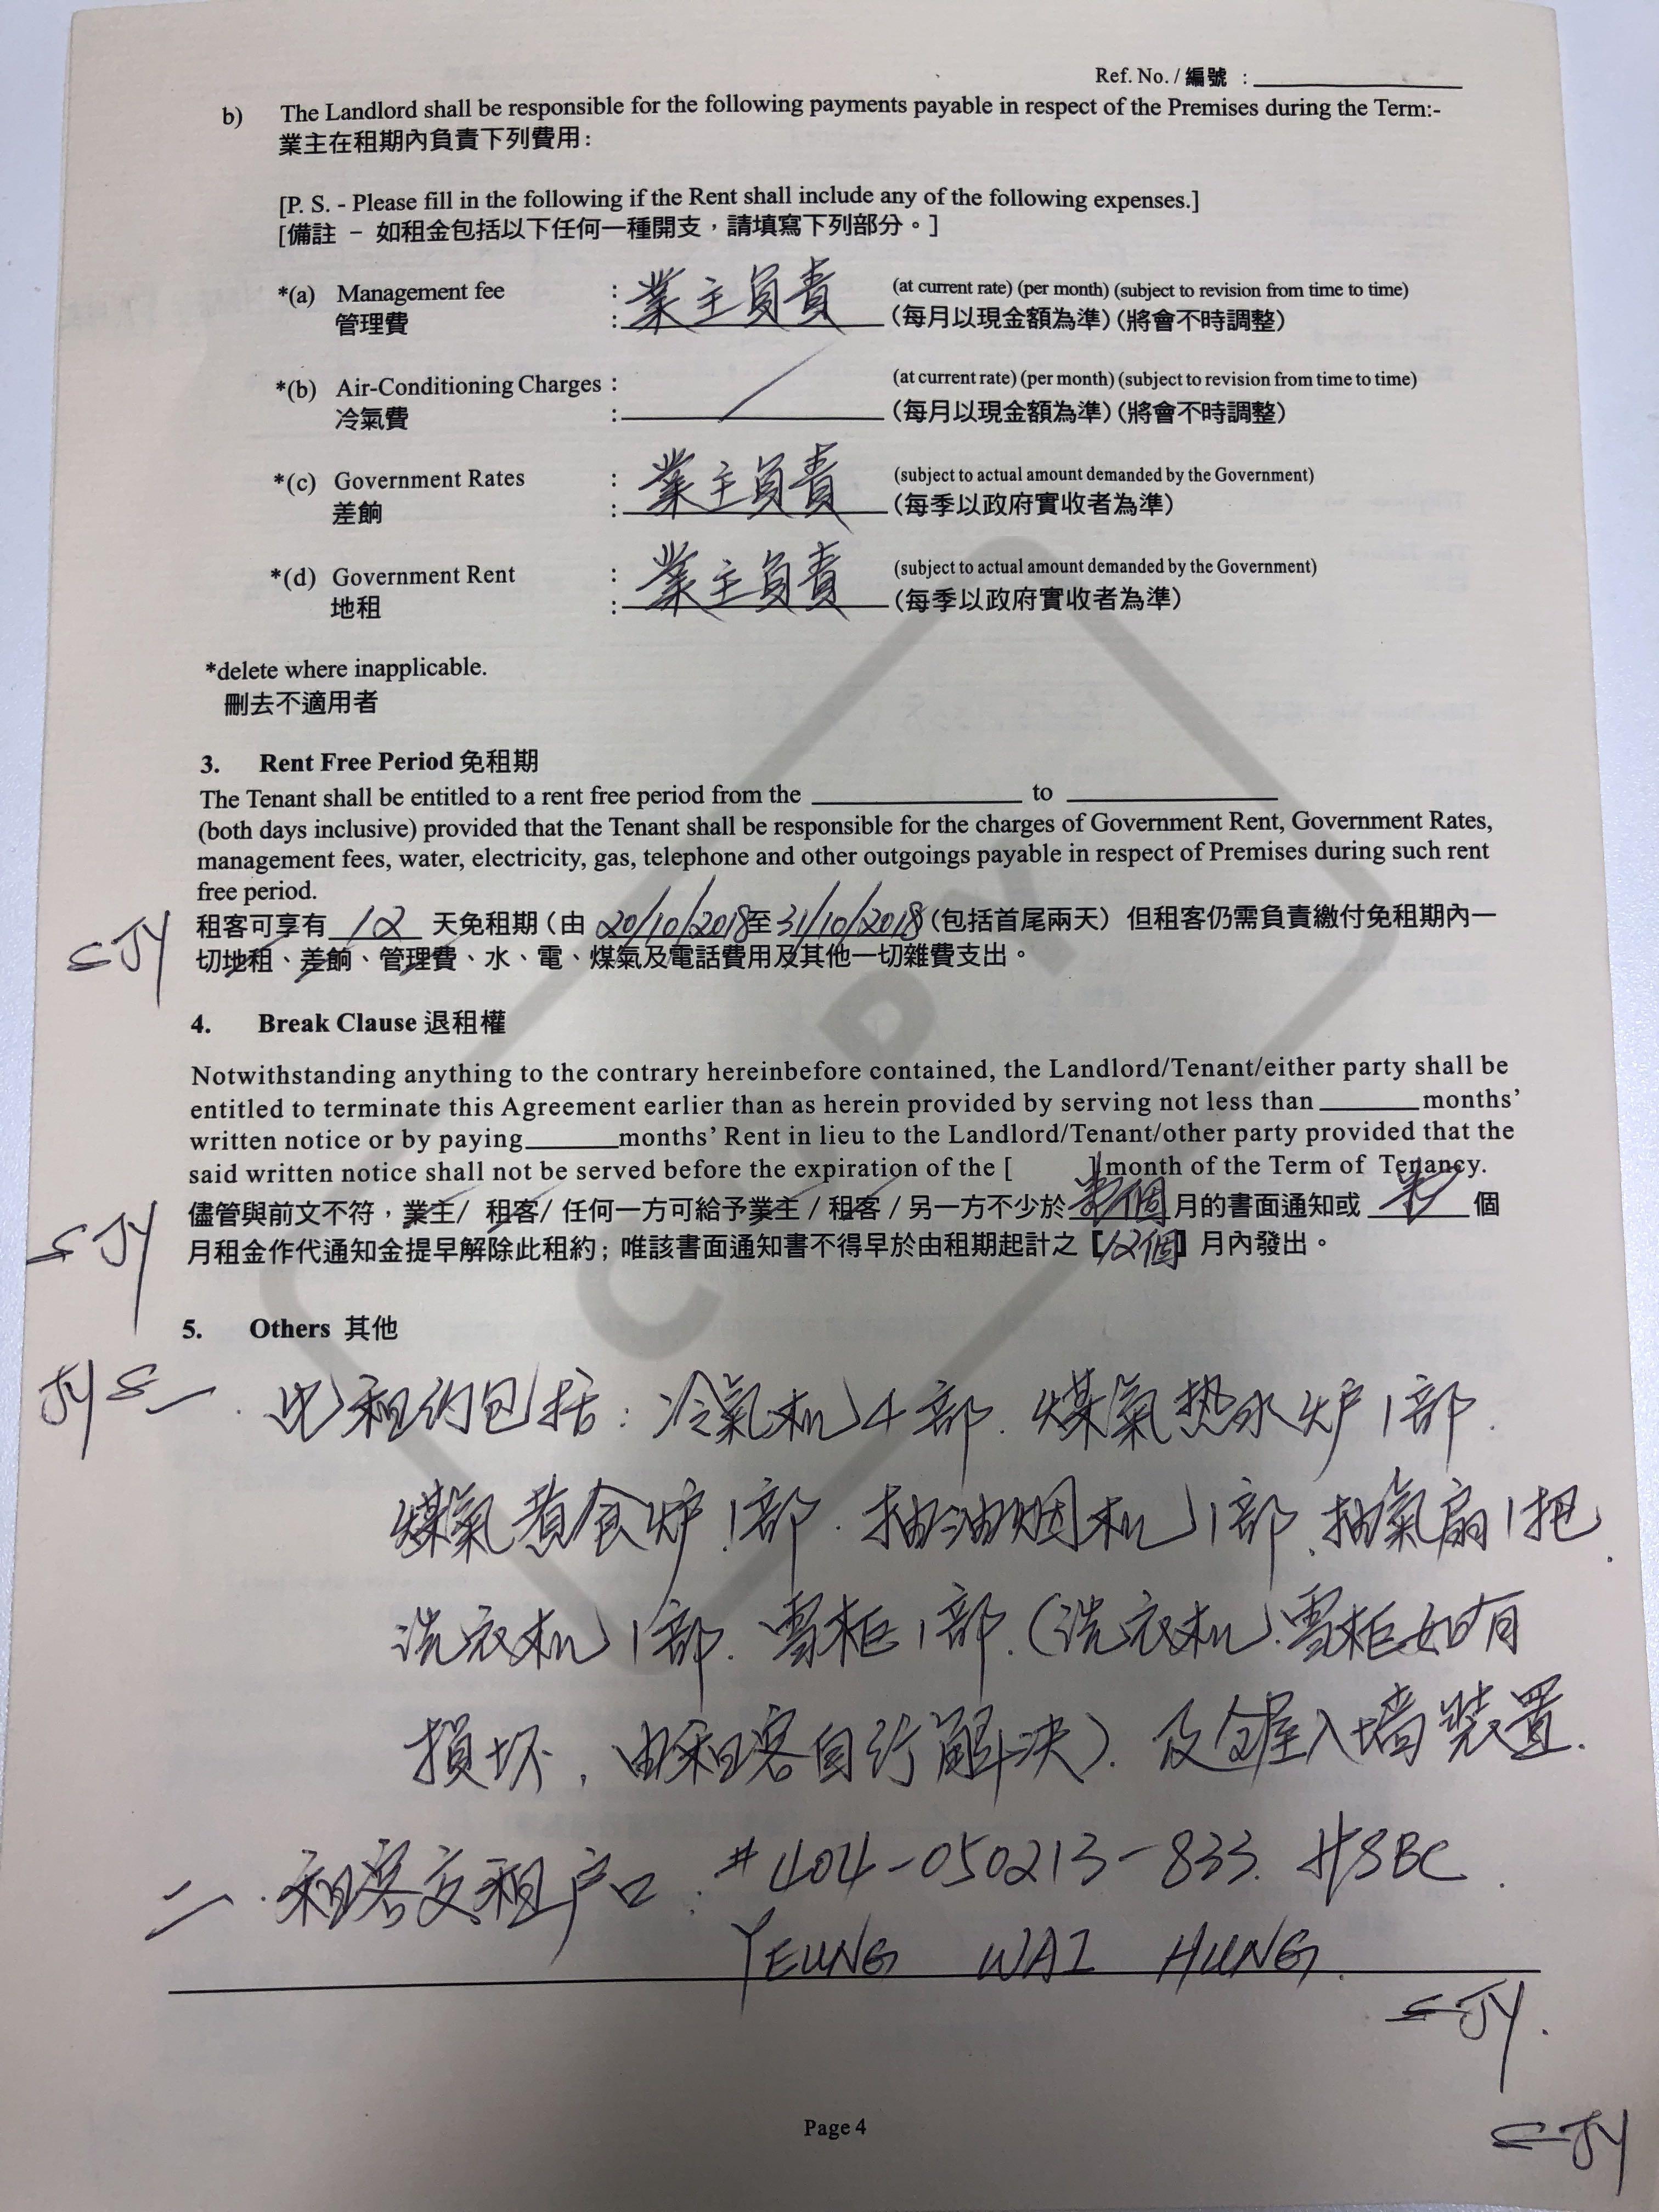 Ref. No. / 編號 :
b) The Landlord shall be responsible for the following payments payable in respect of the Premises during the Term:-
業主在租期內負責下列費用：
[P. S. - Please fill in the following if the Rent shall include any of the following expenses.]
[備註 － 如租金包括以下任何一種開支，請填寫下列部分。]
*(a) Management fee : 業主負責 (at current rate) (per month) (subject to revision from time to time)
管理費 : (每月以現金額為準) (將會不時調整)
*(b) Air-Conditioning Charges : (at current rate) (per month) (subject to revision from time to time)
冷氣費 : (每月以現金額為準) (將會不時調整)
*(c) Government Rates : 業主負責 (subject to actual amount demanded by the Government)
差餉 : (每季以政府實收者為準)
*(d) Government Rent : 業主負責 (subject to actual amount demanded by the Government)
地租 : (每季以政府實收者為準)
*delete where inapplicable.
刪去不適用者
3. Rent Free Period 免租期
The Tenant shall be entitled to a rent free period from the ______ to ______
(both days inclusive) provided that the Tenant shall be responsible for the charges of Government Rent, Government Rates,
management fees, water, electricity, gas, telephone and other outgoings payable in respect of Premises during such rent
free period.
租客可享有 12 天免租期 (由 20/10/2018 至 31/10/2018 (包括首尾兩天) 但租客仍需負責繳付免租期內一
JY 切地租、差餉、管理費、水、電、煤氣及電話費用及其他一切雜費支出。
4. Break Clause 退租權
Notwithstanding anything to the contrary hereinbefore contained, the Landlord/Tenant/either party shall be
entitled to terminate this Agreement earlier than as herein provided by serving not less than ______ months’
written notice or by paying ______ months’ Rent in lieu to the Landlord/Tenant/other party provided that the
said written notice shall not be served before the expiration of the [ ] month of the Term of Tenancy.
儘管與前文不符，業主/ 租客/ 任何一方可給予業主 / 租客 / 另一方不少於 個 月的書面通知或 ______ 個
JY 月租金作代通知金提早解除此租約；唯該書面通知書不得早於由租期起計之【12個】月內發出。
5. Others 其他
JY 一. 此租約包括：冷氣机4部. 煤氣热水炉1部.
煤氣煮食炉1部. 抽油烟机1部. 抽氣扇1把.
洗衣机1部. 雪柜1部. (洗衣机.雪柜如有
損坏, 由租客自行解決). 及全屋入墙裝置.
二. 租客交租户口: #404-050213-833. HSBC.
YEUNG WAI HUNG.
JY.
Page 4
JY
COPY